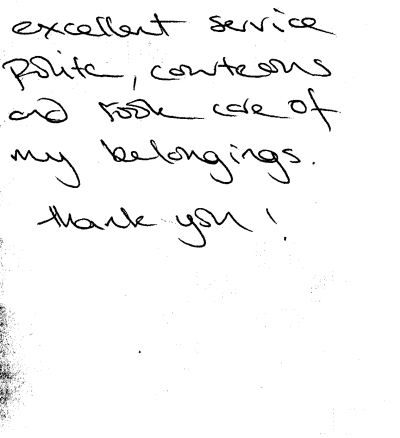 excellent service
Polite, courteous
and took care of
my belongings.
thank you!